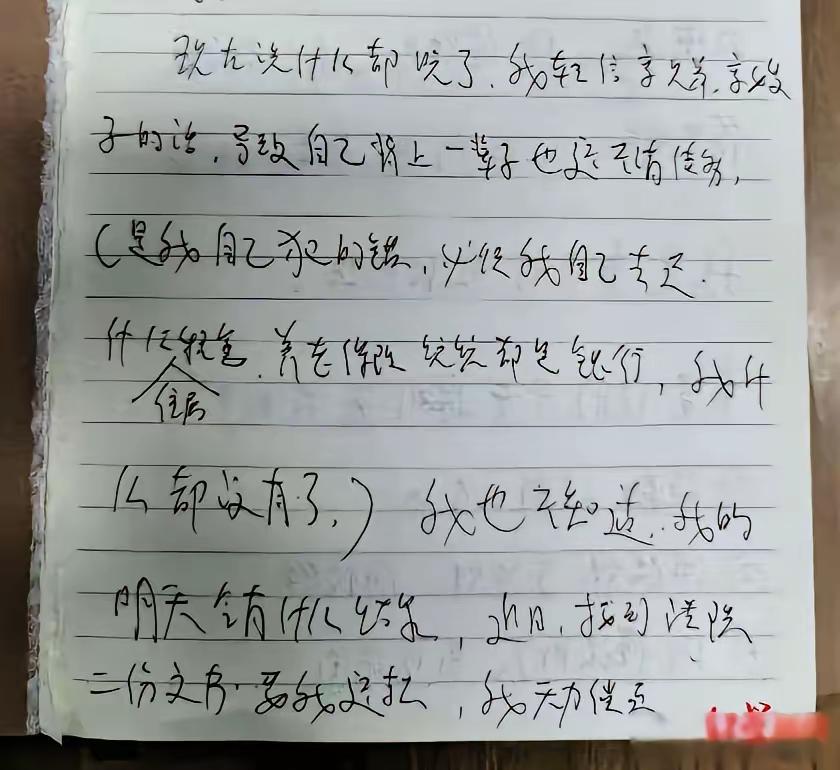 现在说什么都晚了,我轻信李兄弟,李嫂
子的话,导致自己背上一辈子也还不清债务,
(是我自己犯的错,必须我自己去还.
什么积蓄、养老保险统统都是银行,我什
住房
么都没有了,)我也不知道,我的
明天会有什么结果,近日,接到法院
二份文书·要我还款,我无力偿还